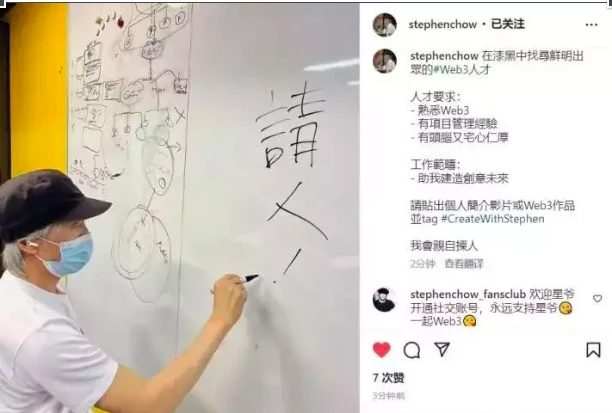 請人!
stephenchow • 已关注
stephenchow 在漆黑中找尋鮮明出
眾的#Web3人才
人才要求:
- 熟悉Web3
- 有項目管理經驗
- 有頭腦又宅心仁厚
工作範疇:
- 助我建造創意未來
請貼出個人簡介影片或Web3作品
並tag #CreateWithStephen
我會親自揀人
2分钟 查看翻译
stephenchow_fansclub 欢迎星爷
开通社交账号，永远支持星爷😘
一起Web3😘
7 次赞
3分钟前